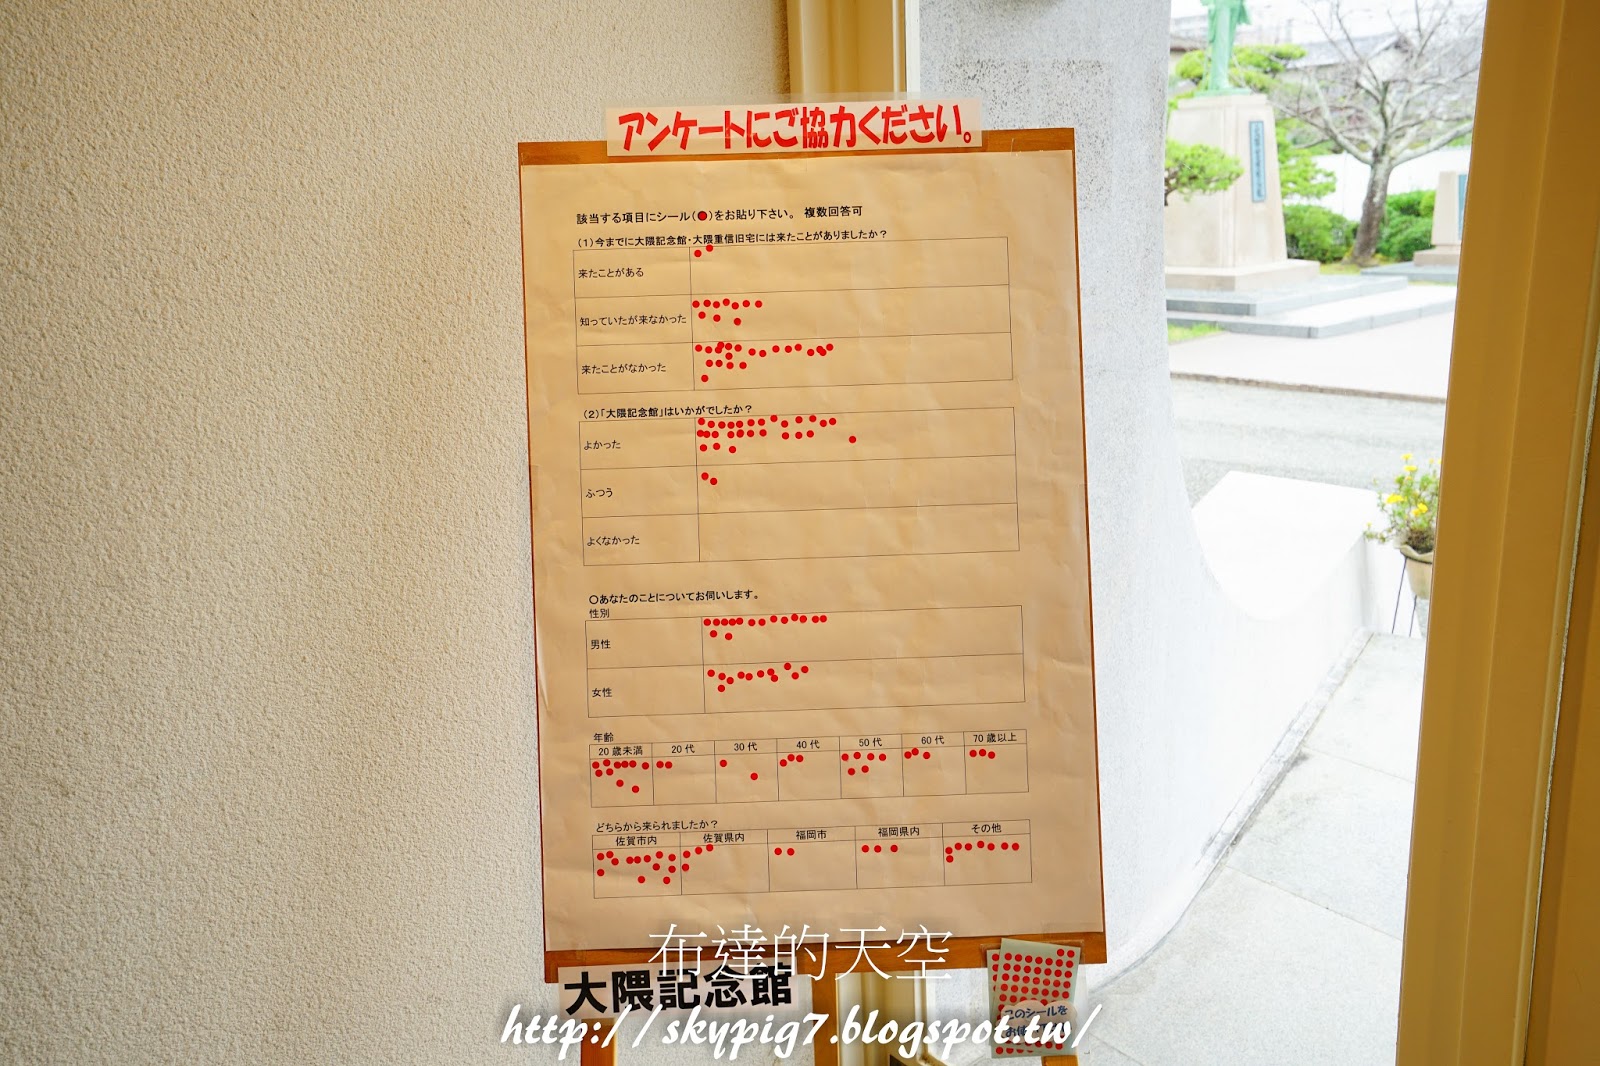 アンケートにご協力ください。
該当する項目にシール(●)をお貼り下さい。 複数回答可
(1)今までに大隈記念館・大隈重信旧宅には来たことがありましたか？
来たことがある
知っていたが来なかった
来たことがなかった
(2)「大隈記念館」はいかがでしたか？
よかった
ふつう
よくなかった
○あなたのことについてお伺いします。
性別
男性
女性
年齢
20歳未満 20代 30代 40代 50代 60代 70歳以上
どちらから来られましたか？
佐賀市内 佐賀県内 福岡市 福岡県内 その他
布達的天空
大隈記念館
このシールを
http://skypig7.blogspot.tw/